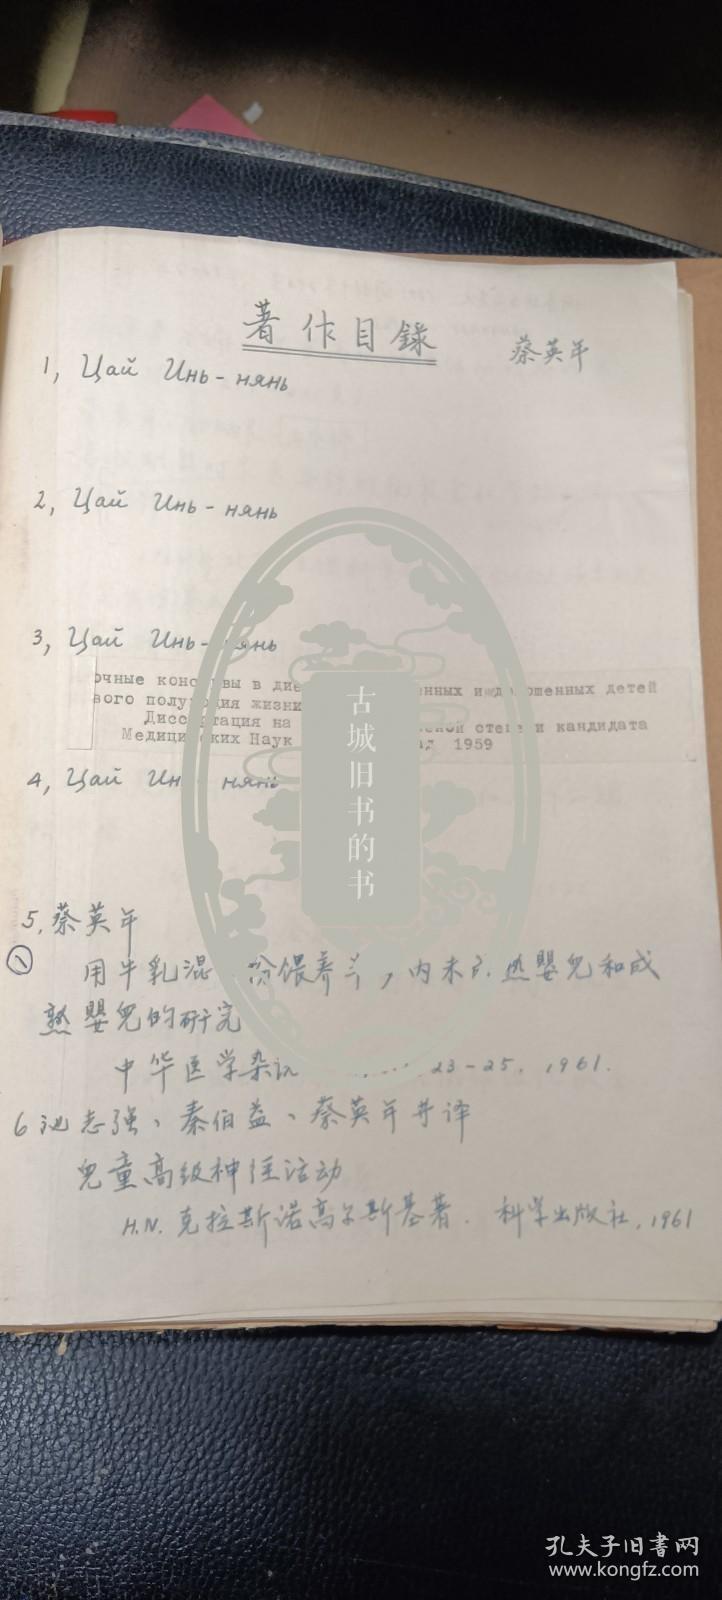 著作目錄
蔡英年
1, Цай Инь-нянь
2, Цай Инь-нянь
3, Цай Инь-нянь
очные консервы в дие енных и доношенных детей
вого полугодия жизни
Диссертация на еной степени кандидата
Медицинских Наук ад 1959
4, Цай Инь-нянь
5, 蔡英年
①
用牛乳混 粉馂养 内未 熟嬰兒和成
熟嬰兒的研究
中华医学杂 23-25, 1961.
6 志强、秦伯益、蔡英年并译
兒童高级神经活动
H.N. 克拉斯诺高尔斯基著. 科学出版社, 1961
古城旧书的书
孔夫子旧书网
www.kongfz.com